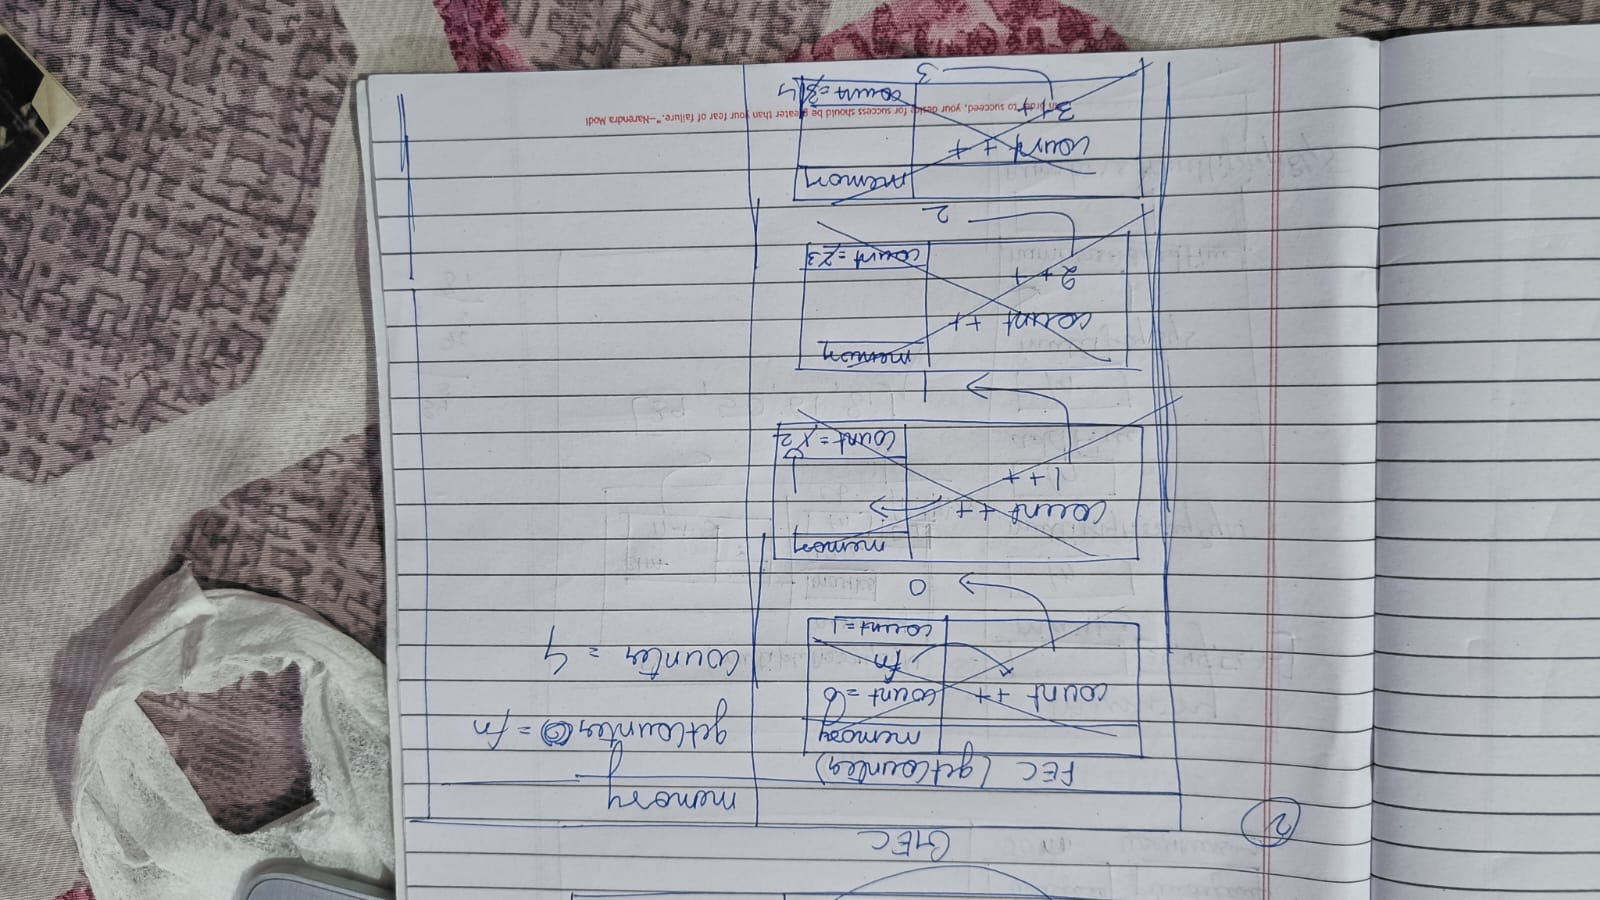 GEC
2
memory
FEC (getCounter)
memory
getCounter() = fn
count ++
count = 0
fn
counter = 4
count = 1
0
memory
count ++
1 ++
count = 1 2
1
memory
count ++
2 ++
count = 2 3
2
memory
count ++
3 ++
"In order to succeed, your desire for success should be greater than your fear of failure."–Narendra Modi
count = 3 4
3